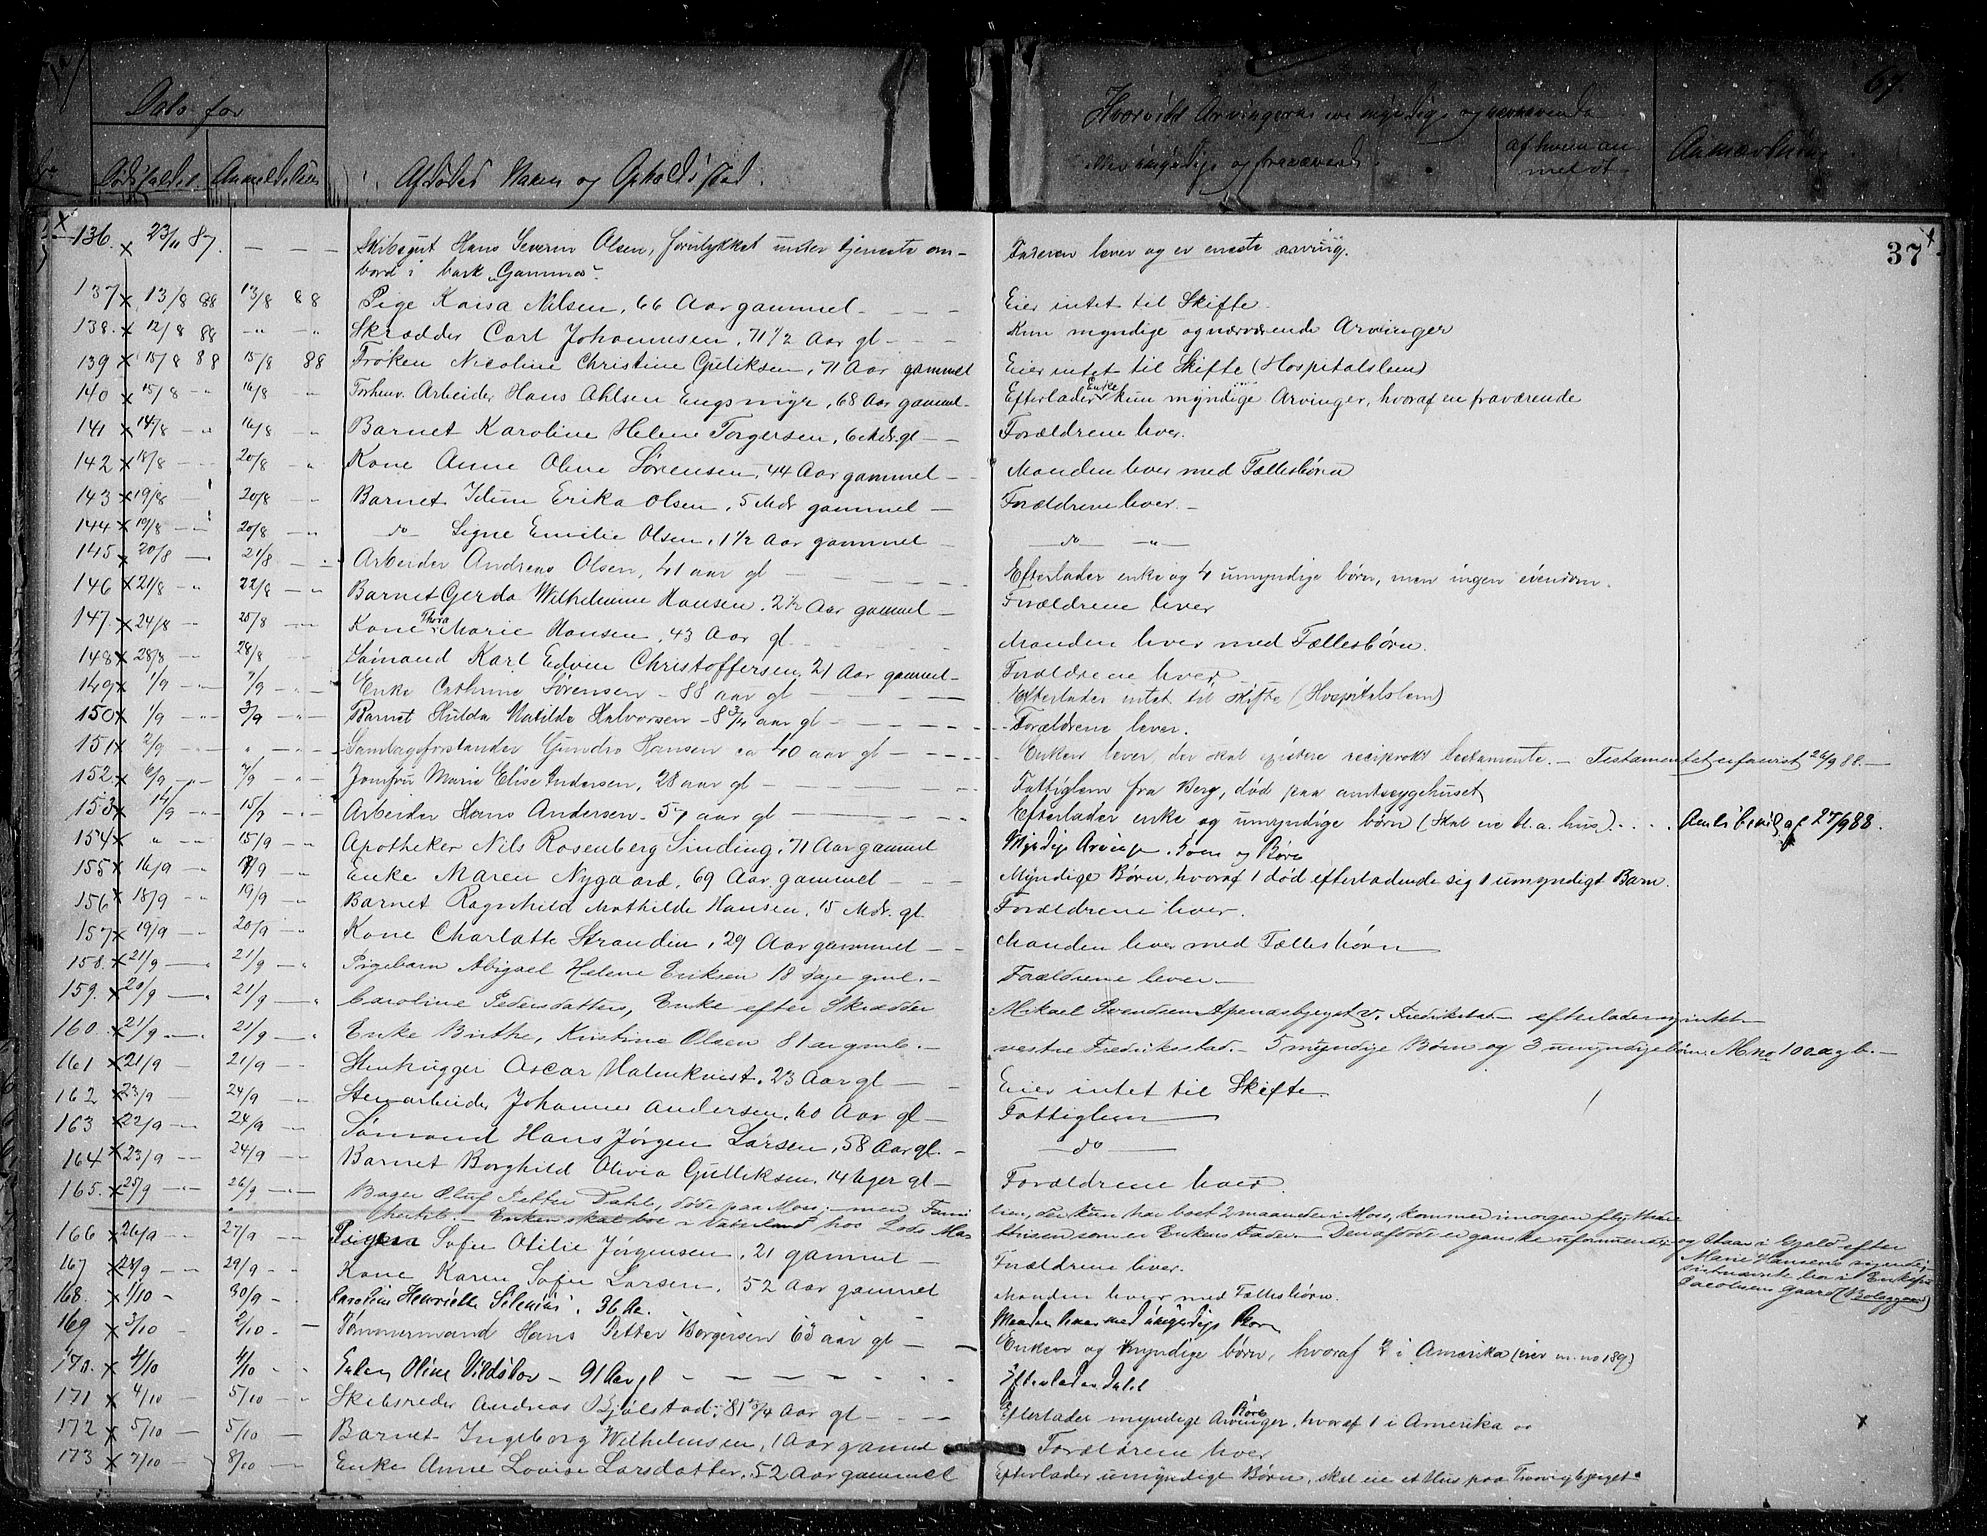 Dato for
Hvorvidt Arvingerne ere myndige og nærværende
67.
Dødsfaldet. Anmeldelsen
Afdødes Navn og Opholdssted.
eller umyndige og fraværende.
af hvem an-
meldt
Anmærkning
37
136. x 23/11 87. — — Skibsgut Hans Severin Olsen, forulykket under tjeneste om- Faderen lever og er eneste arving.
bord i bark "Gamma".
137 x 13/8 88 13/8 88 Pige Kaisa Nilsen, 66 Aar gammel - — — Eier intet til Skifte.
138. x 12/8 88 -"- -"- Skrædder Carl Johannesen, 71 1/2 Aar gl - — - Kun myndige og nærværende Arvinger
139 x 15/8 88 15/8 88 Frøken Nicoline Christine Guliksen, 71 Aar gammel Eier intet til Skifte (Hospitalslem)
140 x 15/8 -"- 16/8 -"- Forhenv. Arbeider Hans Ahlsen Engsmyr, 68 Aar gammel- Efterlader Enke kun myndige Arvinger, hvoraf en fraværende
141 x 14/8 - " 16/8 -"- Barnet Karoline Helene Torgersen, 6 Mdr. gl — Forældrene lever.
142 x 18/8 - - 20/8 - " Kone Anne Oline Sørensen, 44 Aar gammel - Manden lever med Fællesbørn
143 x 19/8 - 20/8 - " Barnet Idun Erika Olsen, 5 Mdr gammel — Forældrene lever. -
144 x 19/8 - - 20/8 - " -do- Signe Emilie Olsen, 1 1/2 Aar gammel - — do — — " —
145 x 20/8 — 21/8 - Arbeider Andreas Olsen, 41 aar gl — Efterlader enke og 4 umyndige børn, men ingen eiendom.
146 x 21/8 - " 22/8 - " Barnet Gerda Wilhelmine Hansen, 2 1/2 Aar gammel — Forældrene lever
147. x 24/8 - " 25/8 - " Kone Thora Marie Hansen, 43 Aar gl. - Manden lever med Fællesbørn.
148 x 28/8 — 28/8 — Sømand Karl Edvin Christoffersen, 21 Aar gammel - Forældrene lever.
149 x 1/9 - " Enke Cathrine Sørensen - 88 aar gl — Efterlader intet til skifte (Hospitalslem)
150 x 1/9 - " 3/9 - " Barnet Hulda Matilde Halvorsen - 8 3/4 aar gl — Forældrene lever.
151 x 2/9 -"- " -"- Gundro Hansen ca 40 aar gl — Enken lever, der skal existere reciprokt testamente. — Testamentet 26/9 88. —
152. x 6/9 -"- 7/9 -"- Jomfru Marie Elise Andersen, 28 aar gl — Fattiglem fra Berg, død paa amtssygehuset
153 x 14/9 -"- 15/9 -"- Arbeider Hans Andersen - 57 aar gl — Efterlader enke og umyndige børn (skal eie bl. a. hus). . . . Amts bevilg. af 27/9 88.
154 x " -"- 15/9 -"- Apotheker Nils Rosenberg Sinding, 71 Aar gammel Myndige Arvinger, Kone og Børn
155 x 16/9 - " 17/9 - " Enke Maren Nygaard, 69 Aar gammel — Myndige Børn, hvoraf 1 død efterladende sig 1 umyndigt Barn.
156 x 18/9 - " 19/9 - " Barnet Ragnhild Mathilde Hansen, 15 Mdr. gl Forældrene lever.
157 x 19/9 - 20/9 - " Kone Charlotte Strandin, 29 Aar gammel — Manden lever med Fællesbørn —
158. x 21/9 — " 21/9 — " Pigebarn Abigael Helene Eriksen 18 dage gml. — Forældrene lever. —
159. x 20/9 — " 21/9 — " Caroline Pedersdatter, Enke efter Skrædder Mikael Svendsen Apenæsbjerget v. Fredrikstad — efterlader sig intet
160. x 21/9 — " 21/9 — " Enke Birthe Kristine Olsen 81 ar gml. — vestre Fredriksstad. — 5 myndige Børn og 3 umyndige børn. M. no 100 a g b. —
161 x 21/9 - 21/9 - " Stenhugger Oscar Malmkvist, 23 Aar gl — Eier intet til Skifte.
162 x 23/9 - 24/9 - " Stenarbeider Johannes Andersen, 60 Aar gl — Fattiglem —
163 x 22/9 - 24/9 - " Sømand Hans Jørgen Larsen, 58 Aar gl. — — do —
164 x 23/9 - - 24/9 - - Barnet Borghild Olivia Gulliksen, 14 Uger gl — Forældrene lever.
165. x 25/9 - " 26/9 — " — Bager Oluf Petter Dahl, døde paa Moss, — men Fami lien, der kun har boet 2 maaneder i Moss, kommer imorgen flyttende
hertil. — Enken skal bo i hos Lods Mar- thinsen som er Enkens Fader. — Den afdøde er ganske uformuende og staar i Gjeld efter
166 x 26/9 - " 27/9 - " Pigen Sofie Otilie Jørgensen, 21 gammel — Forældrene lever. Marie Hansens
167 x 28/9 - " 29/9 - " Kone Karen Sofie Larsen, 52 Aar gammel Manden lever med Fællesbørn. Jacobsens Gaard
168. x 1/10 - 30/9 - Karoline Henriette Silenius, 36 Aar. Manden lever med umyndige Børn
169 x 3/10 - 2/10 - Tømmermand Hans Petter Børgersen 63 aar gl — Enken og myndige børn, hvoraf 2 i Amerika (eier m. no 189)
170. x 4/10 4/10 - Enken Oline Vildskov - 91 Aar gl - Efterlader intet
171 x 4/10 - 5/10 - Skibsreder Andreas Bjølstad, 81 3/4 Aar gl — Efterlader myndige Arvinger Børn, hvoraf 1 i Amerika
172 x 5/10 — 5/10 - Barnet Ingeborg Wilhelmsen, 1 Aar gammel Forældrene lever
173 x 7/10 - 8/10 — Enke Anne Lovise Larsdatter, 52 Aar gammel Efterlader umyndige Børn, skal eie et Hus paa